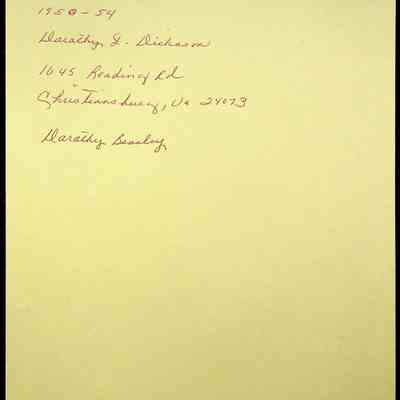 1950-54
Dorothy L. Dickason
1645 Reading Rd
Christiansburg, Va 24073
Dorothy Beasley